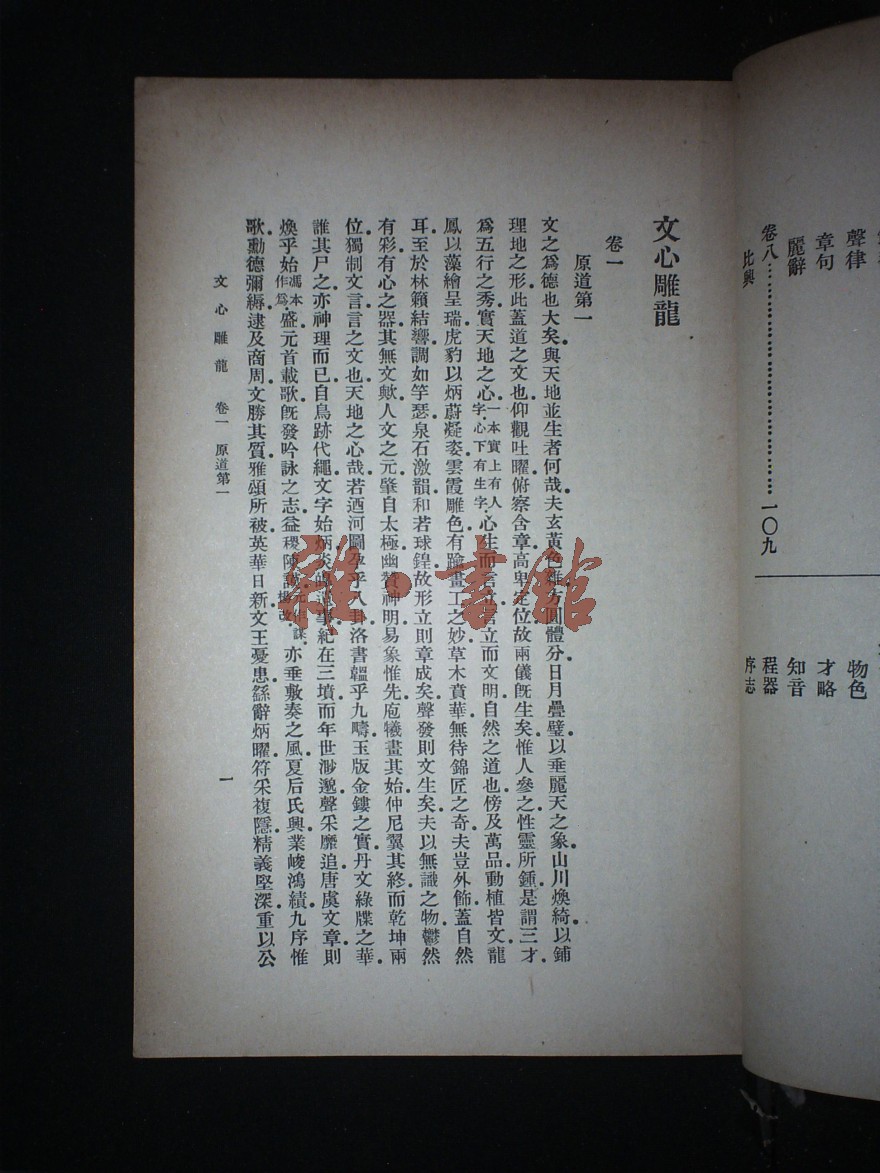 聲律
章句
麗辭
卷八……………………一〇九
比興
物色
才略
知音
程器
序志
文心雕龍
卷一
原道第一
文之爲德也大矣與天地並生者何哉夫玄黃色雜方圓體分日月疊璧以垂麗天之象山川煥綺以鋪
理地之形此蓋道之文也仰觀吐曜俯察含章高卑定位故兩儀旣生矣惟人參之性靈所鍾是謂三才
爲五行之秀實天地之心一本實上有人字心下有生字心生而言立言立而文明自然之道也傍及萬品動植皆文龍
鳳以藻繪呈瑞虎豹以炳蔚凝姿雲霞雕色有踰畫工之妙草木賁華無待錦匠之奇夫豈外飾蓋自然
耳至於林籟結響調如竽瑟泉石激韻和若球鍠故形立則章成矣聲發則文生矣夫以無識之物鬱然
有彩有心之器其無文歟人文之元肇自太極幽贊神明易象惟先庖犧畫其始仲尼翼其終而乾坤兩
位獨制文言言之文也天地之心哉若迺河圖孕乎八卦洛書韞乎九疇玉版金鏤之實丹文綠牒之華
誰其尸之亦神理而已自鳥跡代繩文字始炳炎皞遺事紀在三墳而年世渺邈聲采靡追唐虞文章則
煥乎始馮本作爲盛元首載歌旣發吟詠之志益稷陳謨元作謀楊改亦垂敷奏之風夏后氏興業峻鴻績九序惟
歌勳德彌縟逮及商周文勝其質雅頌所被英華日新文王憂患繇辭炳曜符采複隱精義堅深重以公
文心雕龍 卷一 原道第一
一
雜·書館